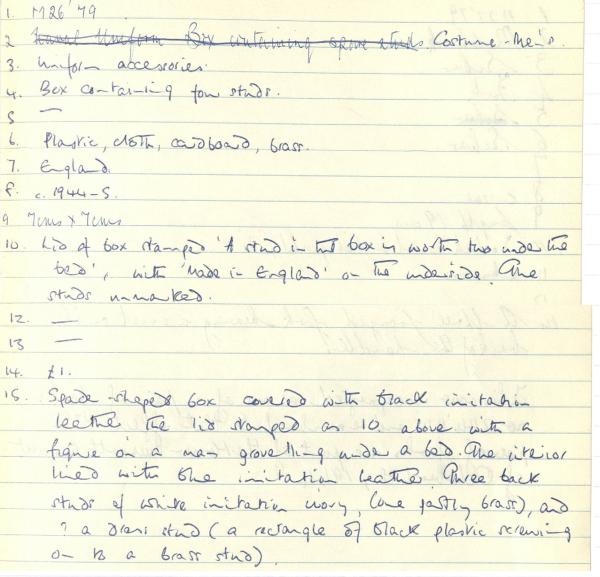 1. M26 '79
2 Naval Uniform Box containing spare studs Costume - Men's.
3. Uniform accessories.
4. Box containing four studs.
5 —
6. Plastic, cloth, cardboard, brass.
7. England.
8. c. 1944-5.
9 7cms x 7cms
10. Lid of box stamped 'A stud in the box is worth two under the
bed', with 'Made in England' on the underside. The
studs unmarked.
12. —
13 —
14. £1.
15. Spade-shaped box covered with black imitation
leather the lid stamped as 10. above with a
figure of a man grovelling under a bed. The interior
lined with blue imitation leather. Three back
studs of white imitation ivory, (one partly brass), and
? a dress stud (a rectangle of black plastic screwing
on to a brass stud).